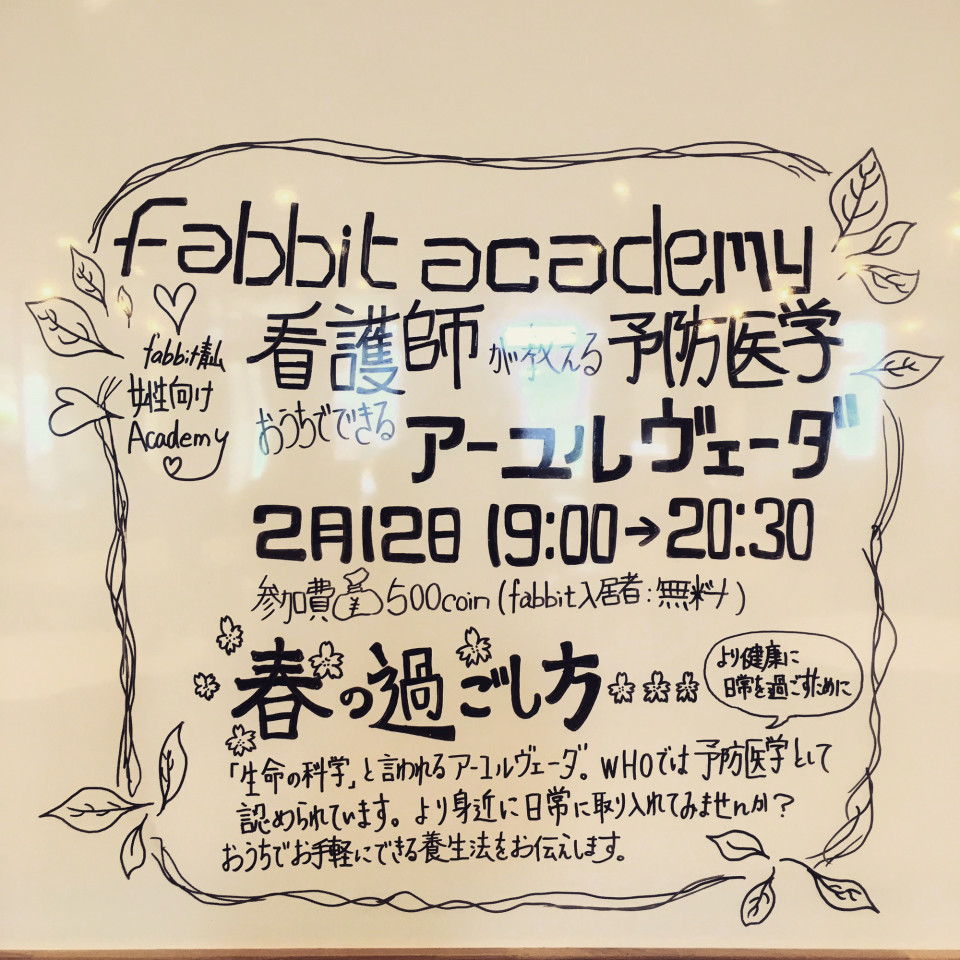 fabbit academy
fabbit青山
女性向け
Academy
看護師が教える予防医学
おうちでできる
アーユルヴェーダ
2月12日 19:00→20:30
参加費 ¥ 500coin (fabbit入居者:無料)
春の過ごし方
より健康に
日常を過ごすために
「生命の科学」と言われるアーユルヴェーダ。WHOでは予防医学として
認められています。より身近に日常に取り入れてみませんか?
おうちでお手軽にできる養生法をお伝えします。